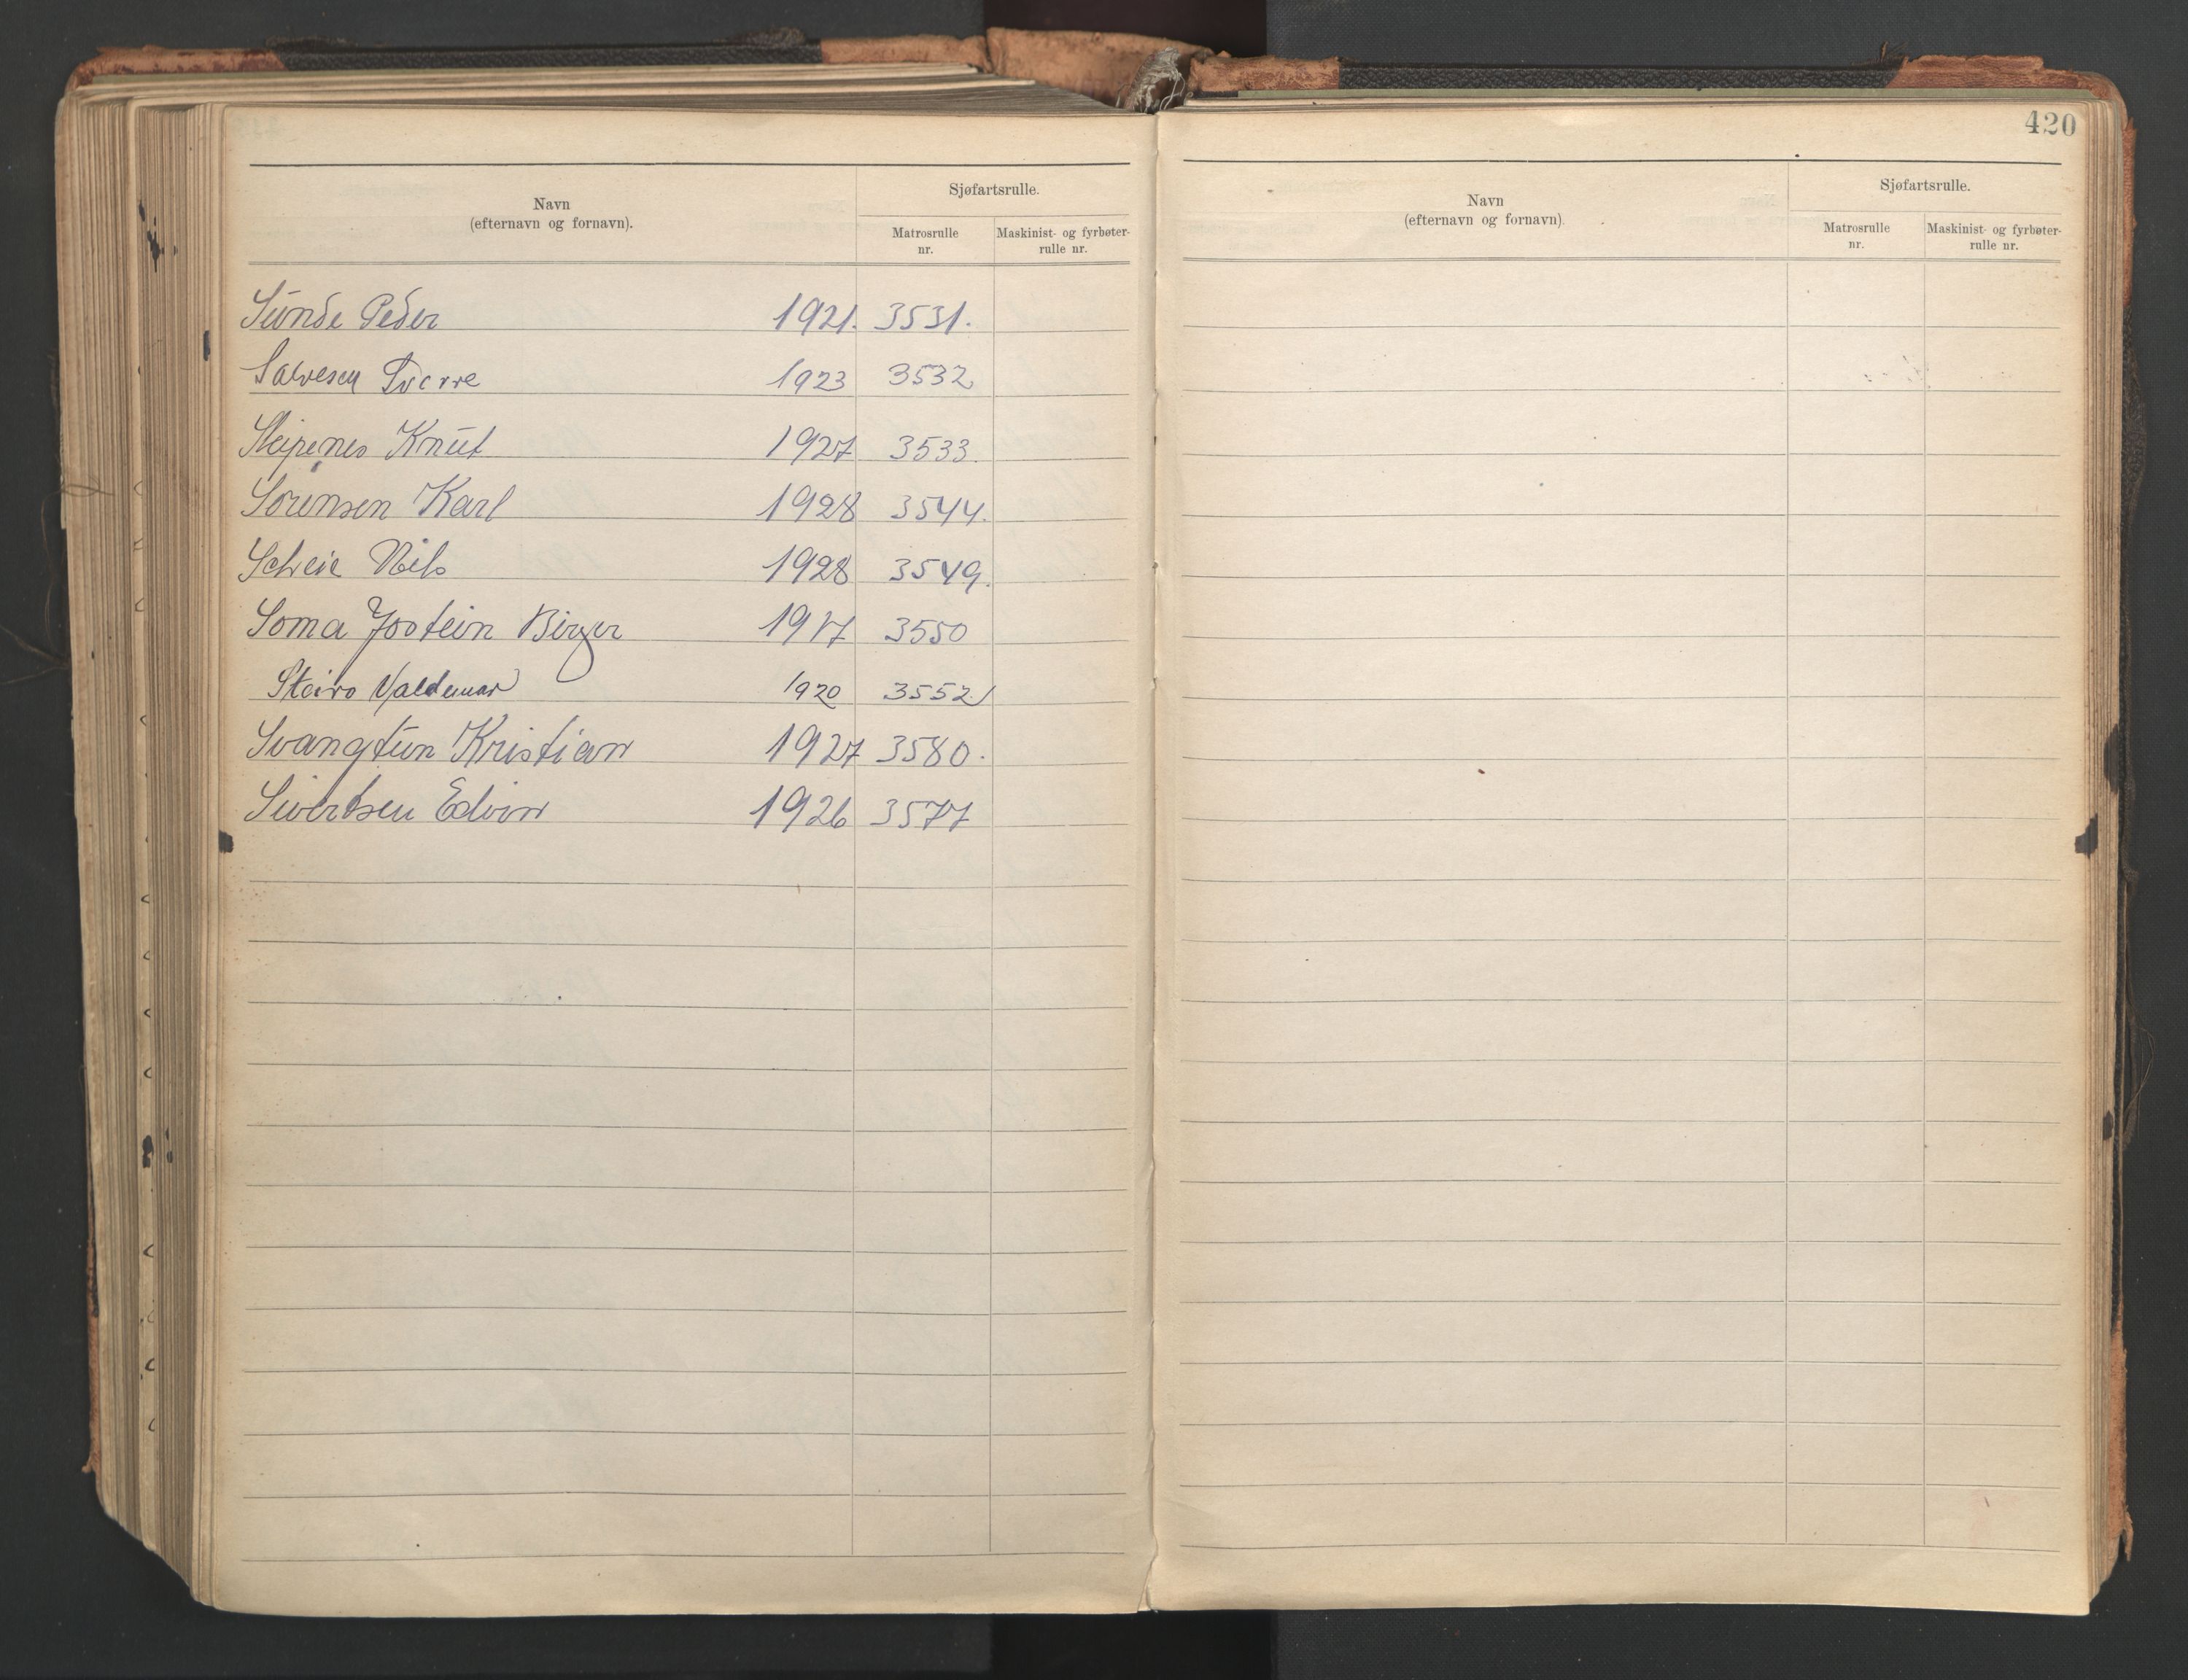 Navn
(efternavn og fornavn).
Sjøfartsrulle.
Matrosrulle
nr.
Maskinist- og fyrbøter-
rulle nr.
Sunde Peder 1921. 3531.
Salvesen Sverre 1923 3532
Sleipenes Knut 1927 3533.
Sørensen Karl 1928 3544.
Scheie Nils 1928 3549.
Soma Jostein Birger 1917 3550
Steiro Valdemar 1920 3552
Svangtun Kristian 1927 3580.
Sivertsen Edvin 1926 3577
420
Navn
(efternavn og fornavn).
Sjøfartsrulle.
Matrosrulle
nr.
Maskinist- og fyrbøter-
rulle nr.